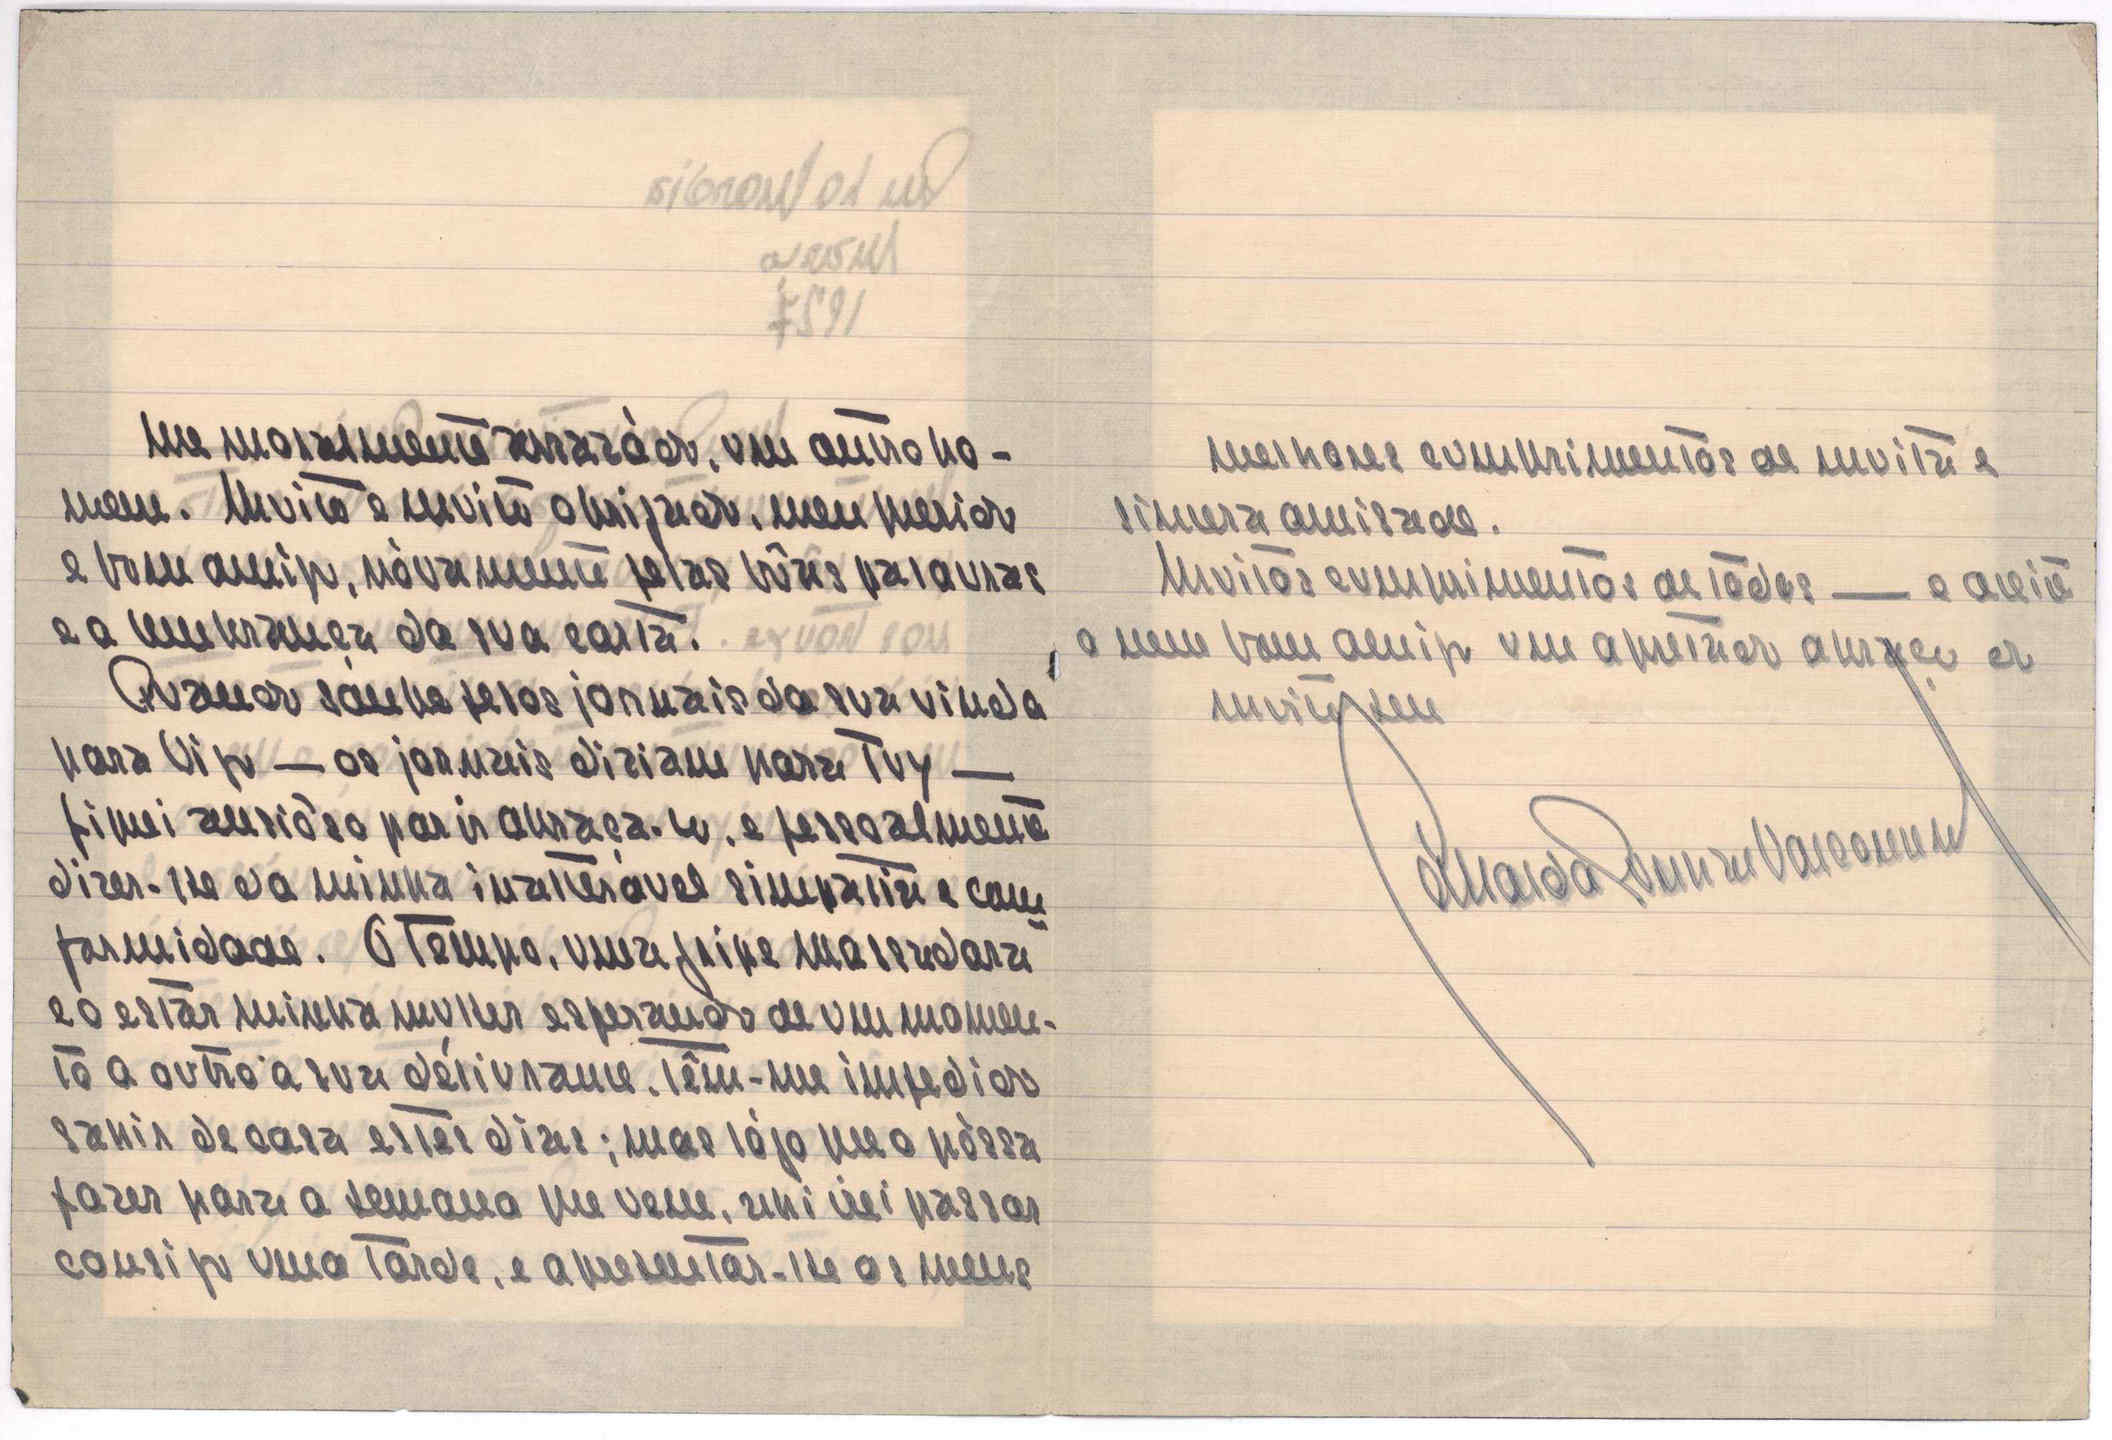 me moralmente arrazádo, um outro ho-
mem. Muito e muito obrigado, meu querido
e bom amigo, nòvamente pelas bôas palavras
e a lembrança da sua carta.
Quando sòube pelos jornais da sua vinda
para Vigo — os jornais diziam para Tuy —
fiquei ansiôso por ir abraça-lo, e pessoalmente
dizer-lhe da minha inalterável simpatia e com
formidade. O tempo, uma gripe massadora
e o estár minha mulher esperando de um momen-
to a outro a sua délivrance, têm-me impedido
sahir de casa estes dias; mas lógo que o póssa
fazer para a semana que vem, ahi irei passar
comsigo uma tarde, e apresentar-lhe os meus
melhores cumprimentos de muita e
sincera amisade.
Muitos cumprimentos de tôdos — e aceite
o meu bom amigo um apretado abraço do
muito seu